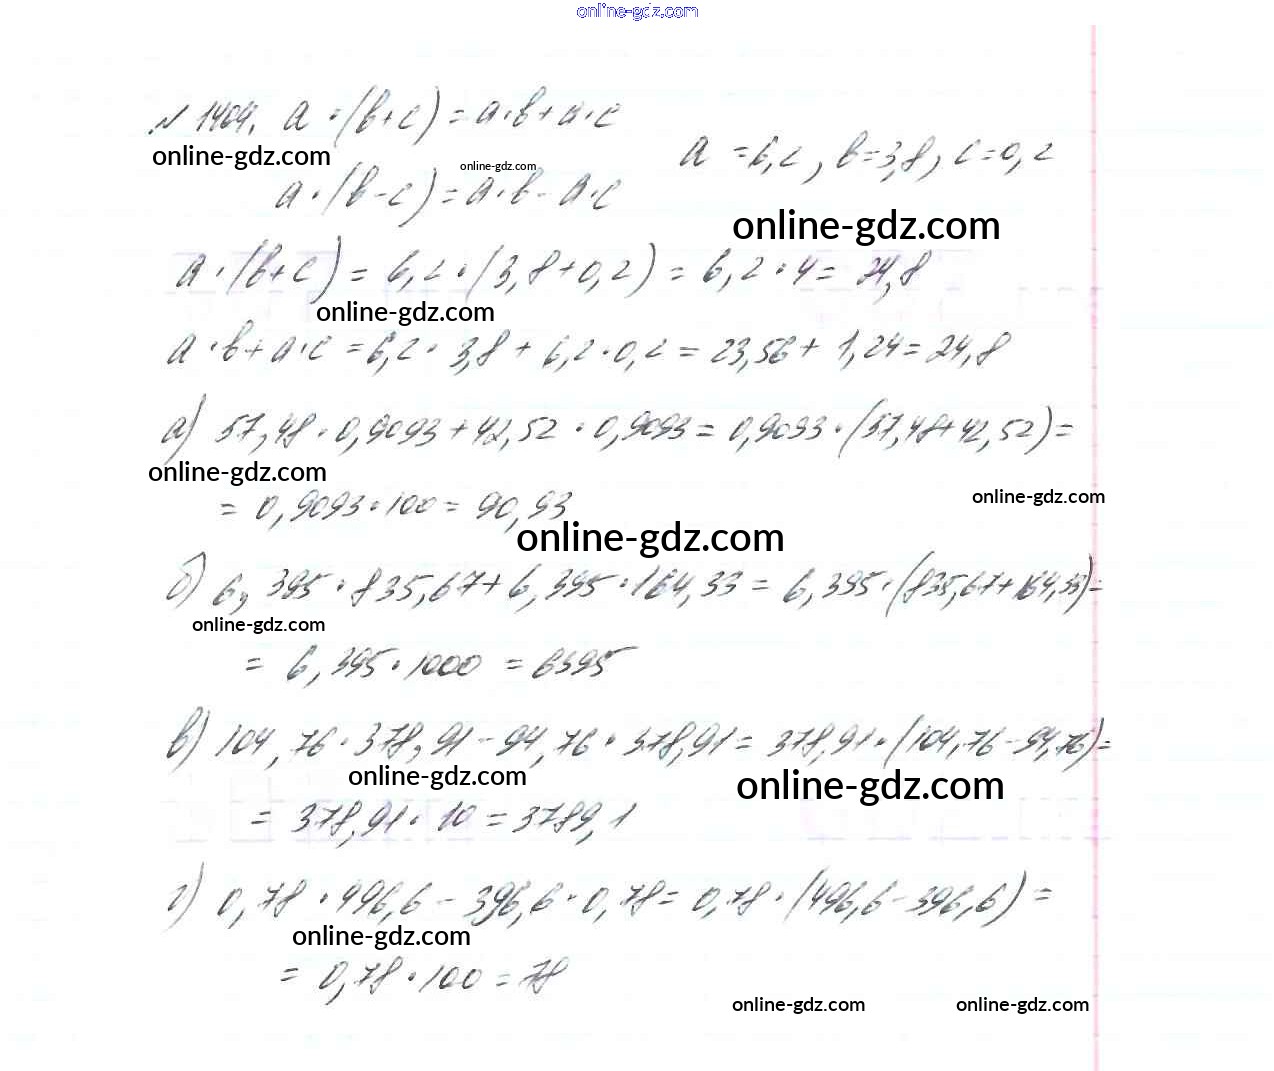 online-gdz.com
№ 1404. a·(b+c) = a·b+a·c
a = 6,2, b=3,8, c=0,2
online-gdz.com
online-gdz.com
a·(b-c) = a·b - a·c
online-gdz.com
a·(b+c) = 6,2·(3,8+0,2) = 6,2·4 = 24,8
online-gdz.com
a·b+a·c = 6,2·3,8 + 6,2·0,2 = 23,56 + 1,24 = 24,8
а) 57,48·0,9093+42,52·0,9093 = 0,9093·(57,48+42,52) =
online-gdz.com
online-gdz.com
= 0,9093·100 = 90,93
online-gdz.com
б) 6,395·835,67+6,395·164,33 = 6,395·(835,67+164,33) =
online-gdz.com
= 6,395·1000 = 6395
в) 104,76·378,91 - 94,76·378,91 = 378,91·(104,76-94,76) =
online-gdz.com
online-gdz.com
= 378,91·10 = 3789,1
г) 0,78·496,6 - 396,6·0,78 = 0,78·(496,6-396,6) =
online-gdz.com
= 0,78·100 = 78
online-gdz.com
online-gdz.com